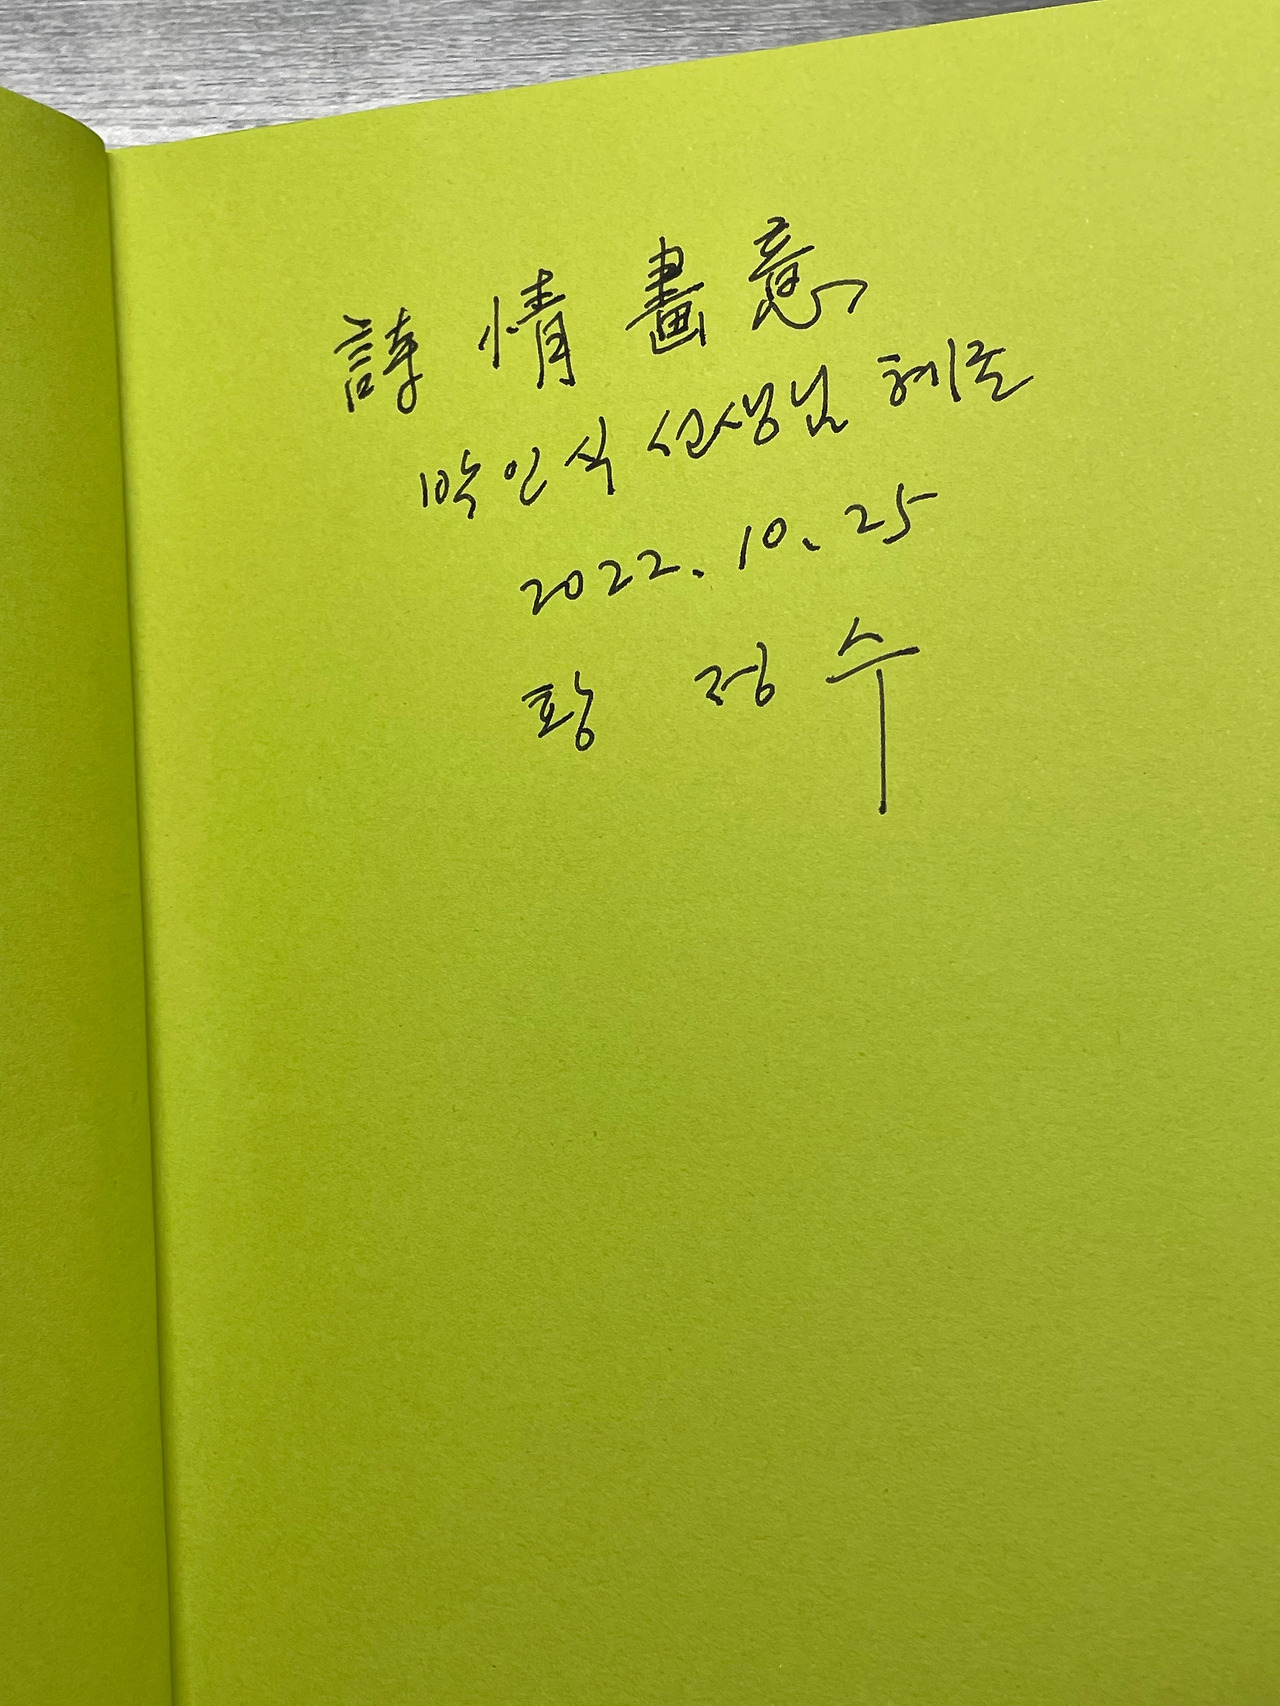 詩情畫意
박인식 선생님 혜존
2022. 10. 25
황정수